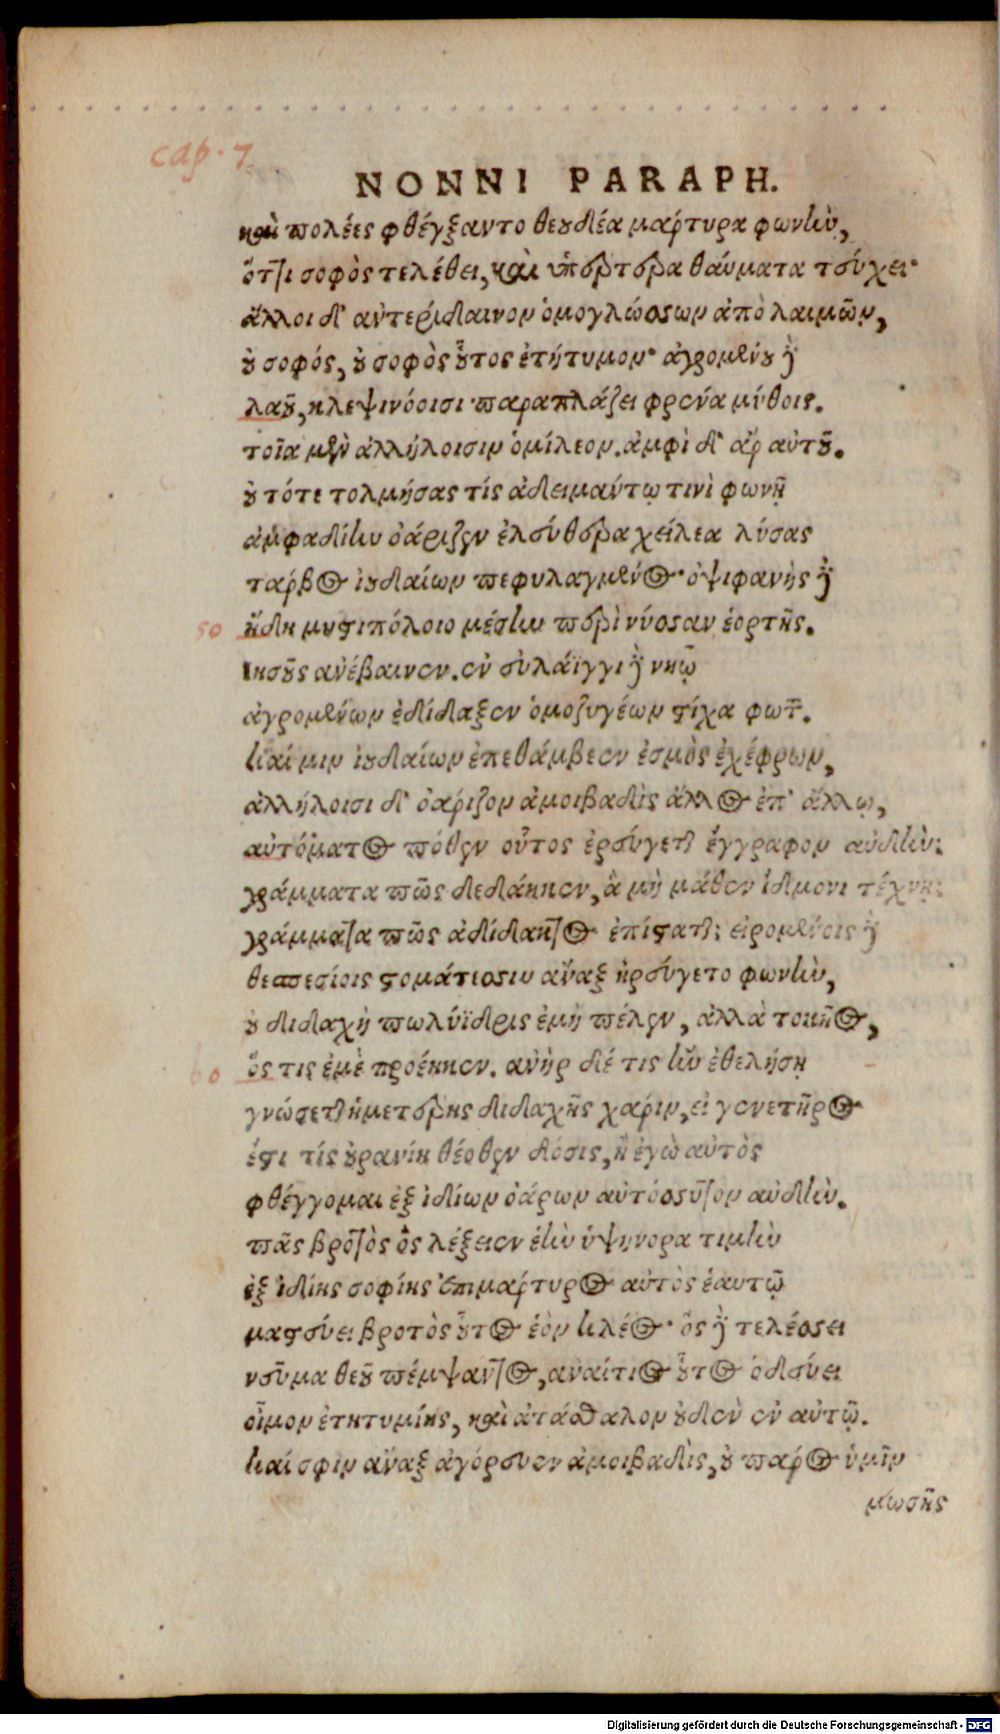 cap. 7
NONNI PARAPH.
καὶ πολέες φθέγξαντο θεουδέα μάρτυρα φωνὴν,
ὅττι σοφὸς τελέθει, καὶ ὑπέρτερα θαύματα τεύχει·
ἄλλοι δ' ἀντερίδαινον ὁμογλώσσων ἀπὸ λαιμῶν,
οὐ σοφός, οὐ σοφὸς οὗτος ἐτήτυμον· ἀγρομένου γὰρ
λαοῦ, κλεψινόοισι παραπλάζει φρένα μύθοις.
τοῖα μὲν ἀλλήλοισιν ὁμίλεον. ἀμφὶ δ' ἄρ αὐτοῦ.
οὐ τότε τολμήσας τίς ἀδειμάντῳ τινὶ φωνῇ
ἀμφαδίην ὀάριζεν ἐλεύθερα χείλεα λύσας
τάρβος ἰουδαίων πεφυλαγμένος· ὀψιφανὴς γὰρ
50 ἤδη μυστιπόλοιο μέσην περὶ νύσσαν ἑορτῆς.
Ἰησοῦς ἀνέβαινεν. ἐν συλάϊγγι γὰρ νηῷ
ἀγρομένων ἐδίδαξεν ὁμοζυγέων στίχα φωτῶν.
καί μιν ἰουδαίων ἐπεθάμβεεν ἑσμὸς ἐχέφρων,
ἀλλήλοισι δ' ὀάριζον ἀμοιβαδὶς ἄλλος ἐπ' ἄλλῳ,
αὐτόματος πόθεν οὗτος ἐρεύγεται ἔγγραφον αὐδὴν;
γράμματα πῶς δεδάηκεν, ἃ μὴ μάθεν ἴδμονι τέχνῃ;
γράμματα πῶς ἀδίδακτος ἐπίσταται; εἰρομένοις γὰρ
θεσπεσίοις στομάτεσσιν ἄναξ ἠρεύγετο φωνὴν,
οὐ διδαχὴ πωλύϊδρις ἐμὴ πέλεν, ἀλλὰ τοκῆος,
60 ὅς τις ἐμὲ προέηκεν. ἀνὴρ δέ τις ἢν ἐθελήσῃ
γνώσεται ἡμετέρης διδαχῆς χάριν, εἰ γενετῆρος
ἔστι τίς οὐρανίη θέοθεν δόσις, ἢ ἐγὼ αὐτὸς
φθέγγομαι ἐξ ἰδίων ὀάρων αὐτόσσυτον αὐδὴν.
πᾶς βροτὸς ὃς λέξειεν ἑὴν ὑψήνορα τιμὴν
ἐξ ἰδίης σοφίης ἐπιμάρτυρος αὐτὸς ἑαυτῷ
μαστεύει βροτὸς οὗτος ἑὸν κλέος· ὃς γὰρ τελέσσει
νεῦμα θεοῦ πέμψαντος, ἀναίτιος οὗτος ὁδεύει
οἶμον ἐτητυμίης, καὶ ἀτάσθαλον οὐδὲν ἐν αὐτῷ.
καί σφιν ἄναξ ἀγόρευεν ἀμοιβαδὶς, οὐ πάρος ὑμῖν
μωσῆς
Digitalisierung gefördert durch die Deutsche Forschungsgemeinschaft - DFG